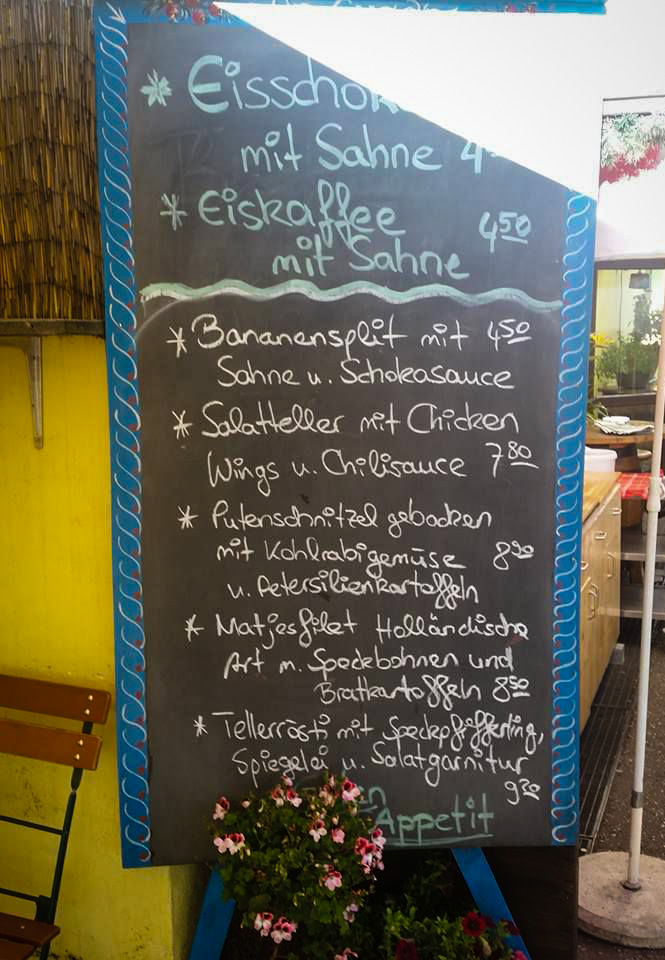 * Eisschok
mit Sahne 4
* Eiskaffee 4.50
mit Sahne
* Bananensplit mit 4.50
Sahne u. Schokosauce
* Salatteller mit Chicken
Wings u. Chilisauce 7.80
* Putenschnitzel gebacken
mit Kohlrabigemüse 8.90
u. Petersilienkartoffeln
* Matjesfilet Holländische
Art m. Speckbohnen und
Bratkartoffeln 8.50
* Tellerrösti mit Speckpfifferling,
Spiegelei u. Salatgarnitur
9.20
Appetit